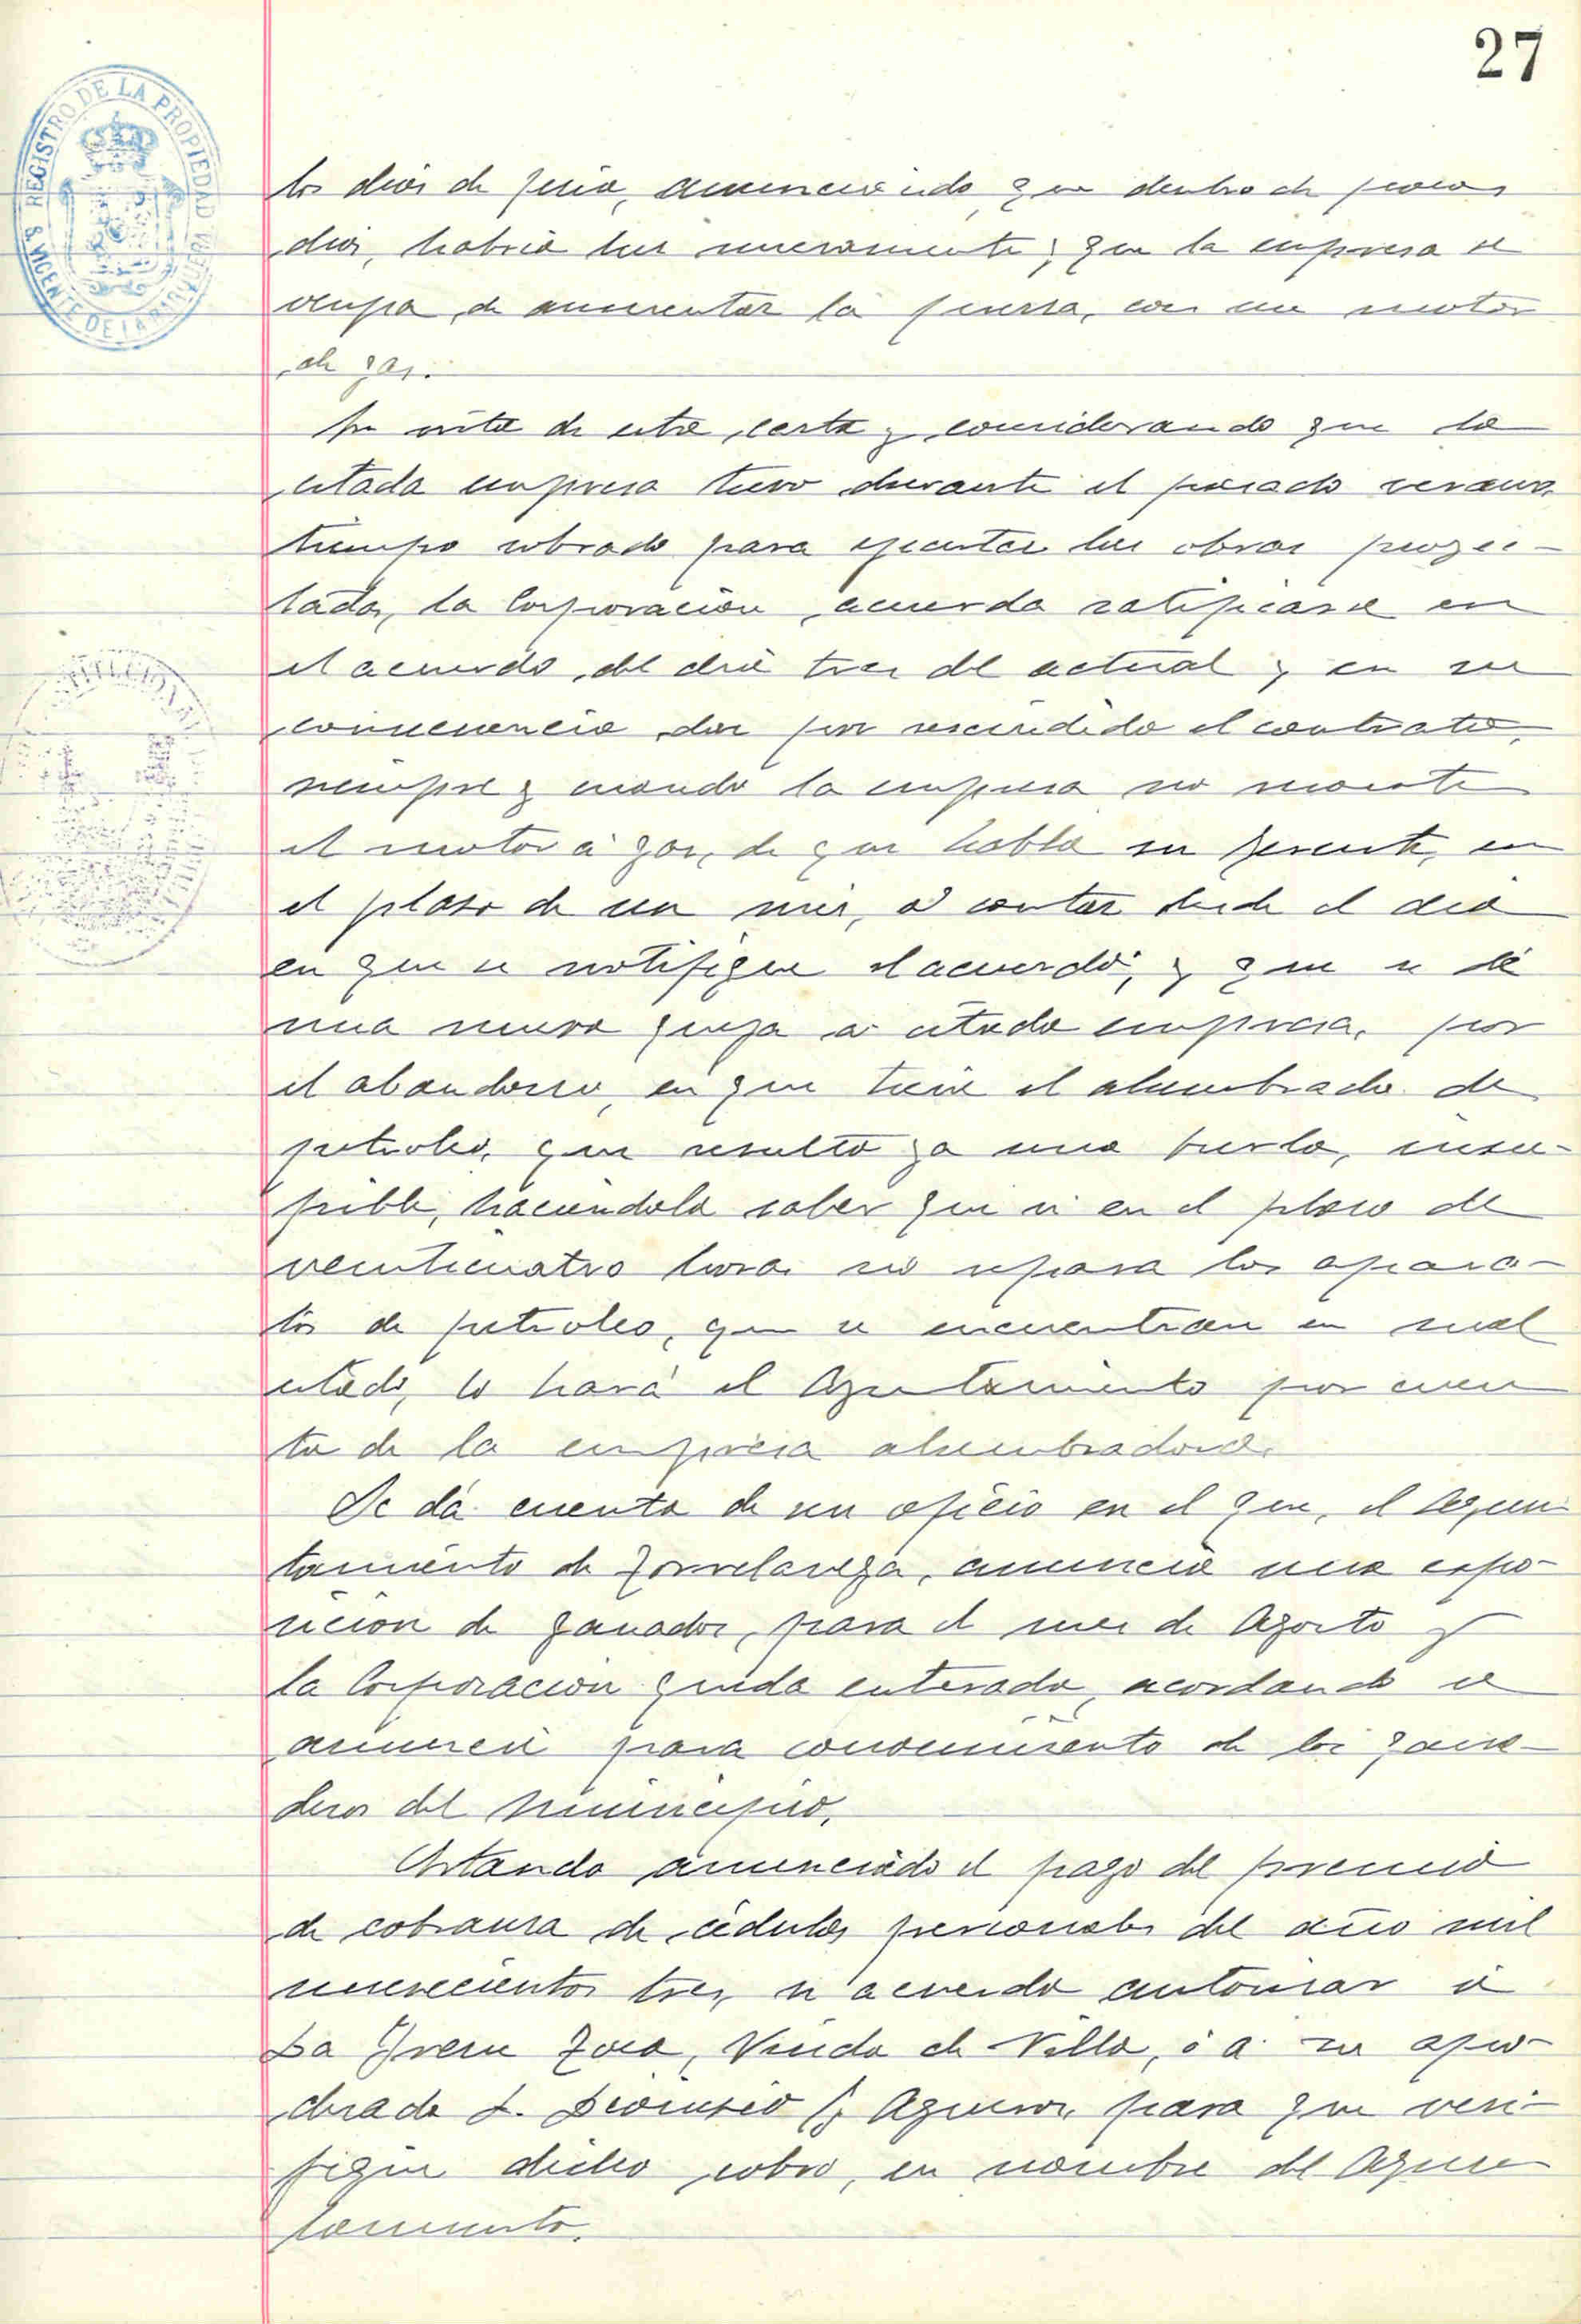 27
REGISTRO DE LA PROPIEDAD
S. VICENTE DE LA BARQUERA
los dias de feria, anunciando que dentro de pocos
dias, habria luz nuevamente, y que la empresa se
ocupa de aumentar la fuerza, con un motor
de gas.
En vista de esta carta y considerando que la
citada empresa tuvo durante el pasado verano,
tiempo sobrado para ejecutar las obras proyec-
tadas, la Corporacion acuerda ratificarse en
el acuerdo del dia tres del actual y en su
consecuencia dar por rescindido el contrato,
siempre y cuando la empresa no monte
el motor á gas, de que habla su gerente, en
el plazo de un mes, a contar desde el dia
en que se notifique el acuerdo, y que se dé
una nueva queja a citada empresa, por
el abandono, en que tiene el alumbrado de
petroleo, que resulta ya una burla, insu-
frible, haciendola saber que si en el plazo de
veinticuatro horas no repara los apara-
tos de petroleo, que se encuentran en mal
estado, lo hará el Ayuntamiento por cuen
ta de la empresa alumbradora.
Se dá cuenta de un oficio en el que, el Ayun
tamiento de Torrelavega, anuncia una expo-
sicion de ganados, para el mes de Agosto y
la Corporacion queda enterada, acordando se
anuncie para conocimiento de los gana-
deros del municipio.
Estando anunciado el pago del premio
de cobranza de cédulas personales del año mil
novecientos tres, se acuerda autorizar á
Da Nueva, Viuda de Villa, ó a su apo-
derado D. Dionisio G. Aguero, para que veri-
fique dicho cobro, en nombre del Ayun
tamiento.